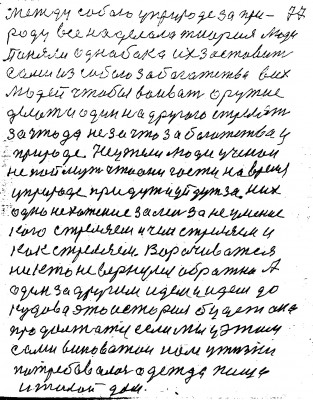 между собою у природе за при- 77
роду все наделала тиория люди
Поняли однобока их заставит
сами из собою за богатства в их
людей чтобы воюват оружие
делат и один на другого стрелят
за что да не за что за богатства у
природе. Не ужели люди ученаи
не поймут что они гости на время
у природе придут и уйдут за них
одно не хотение за их за неумение
кого стреляем и чем стреляем и
как стреляем Ворачиватся
никто не вернулся обратно А
один за другим идем и идем до
кудова это история будет она
продолжатся если мы у этом
сами виноватаи нам у жизни
потребовалас одежда пища
и жилой дом.